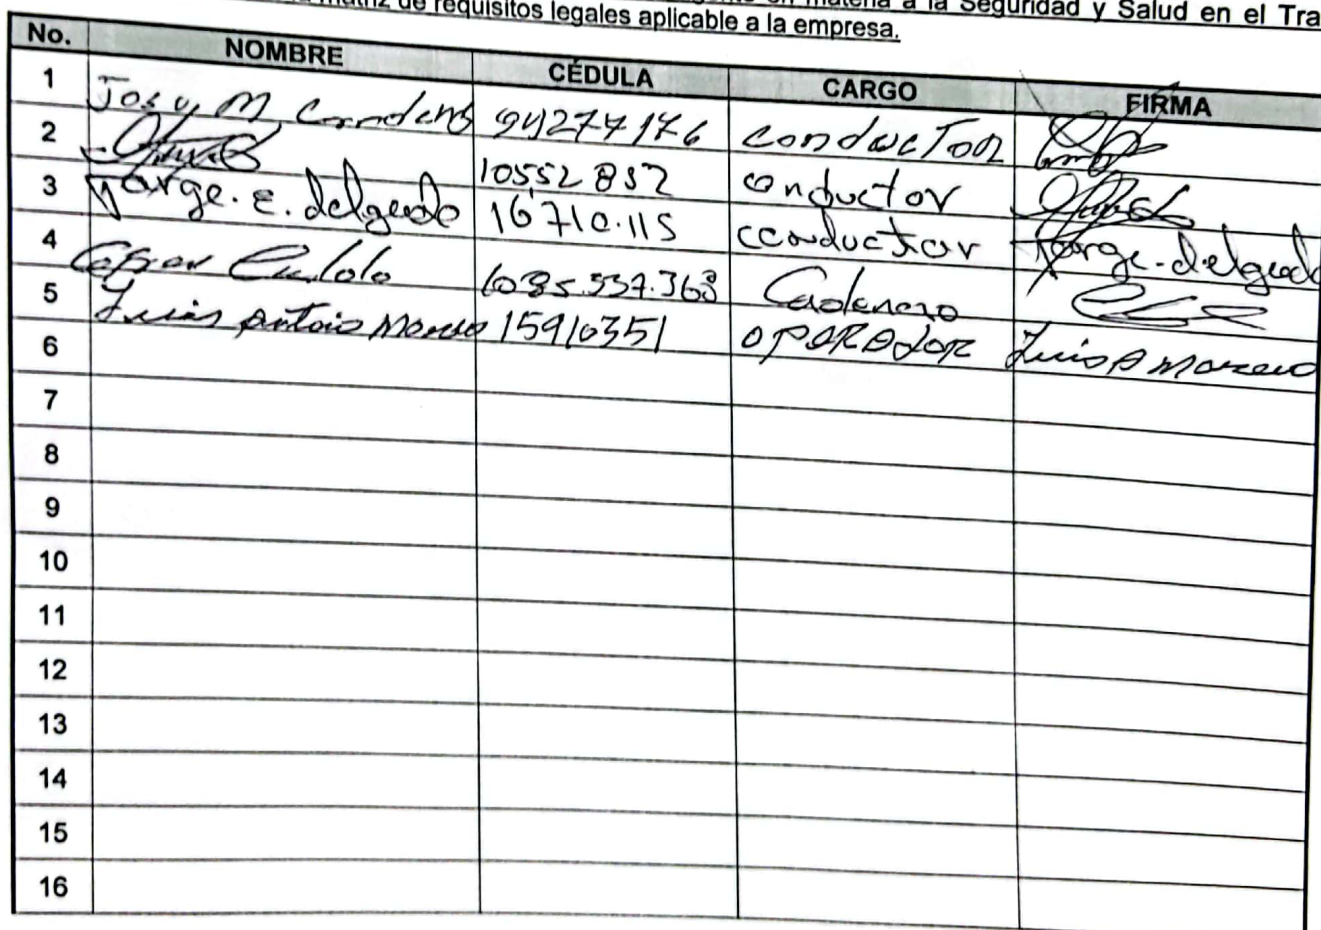 en materia a la Seguridad y Salud en el Tra
matriz de requisitos legales aplicable a la empresa.
No. NOMBRE CÉDULA CARGO FIRMA
1 Josy M 94277176 conductor
2 10552852 conductor
3 Jorge. E. delgado 16710.115 cconductor Jorge. delgado
4 Cadenero
5 Luis Antoio Moreno 15910351 OPERADOR Luis A Moreno
6
7
8
9
10
11
12
13
14
15
16